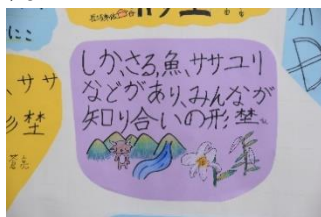 にこ
しか、さる、魚、ササユリ
などがあり、みんなが
知り合いの形埜
ササ
埜